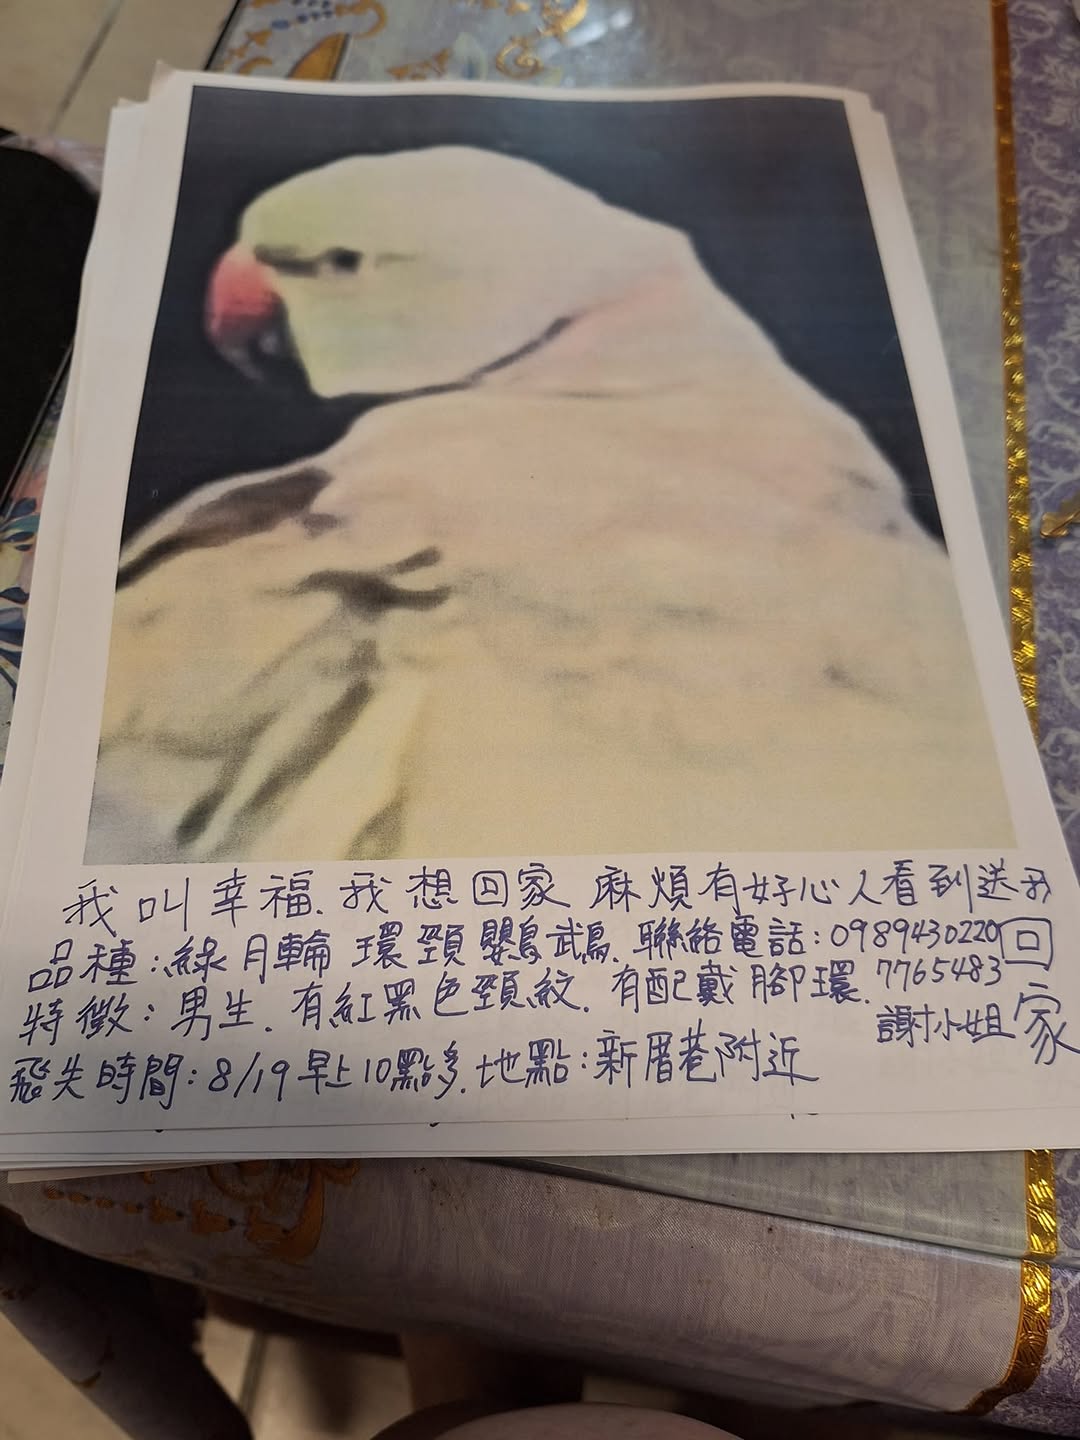 我叫幸福.我想回家 麻煩有好心人看到送我回家
品種:綠月輪 環頸鸚鵡.聯絡電話:0989430220
特徵:男生.有紅黑色頸紋.有配戴腳環.7765483
謝小姐
飛失時間:8/19早上10點多.地點:新厝巷附近